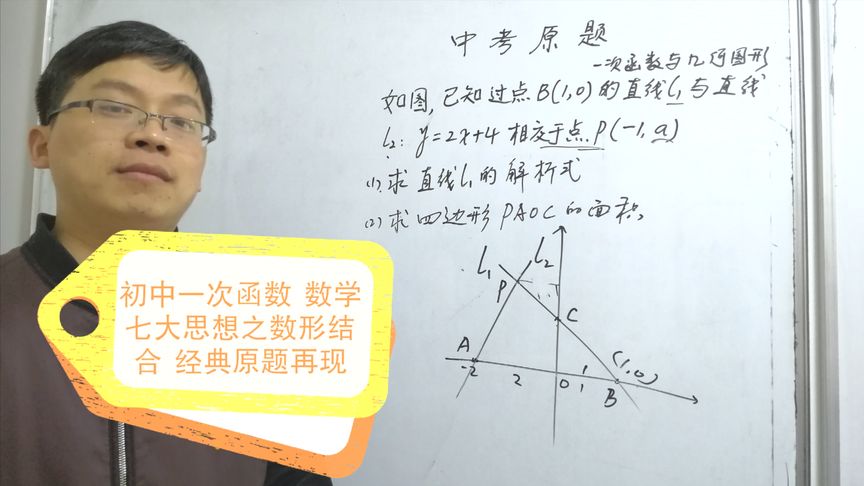 中考原题
一次函数与几何图形
如图,已知过点B(1,0)的直线l₁与直线
l₂: y=2x+4 相交于点P(-1,a)
(1)求直线l₁的解析式
(2)求四边形PAOC的面积.
初中一次函数 数学
七大思想之数形结
合 经典原题再现
l₁
l₂
P
C
A
-2
2
0
1
1
(1,0)
B